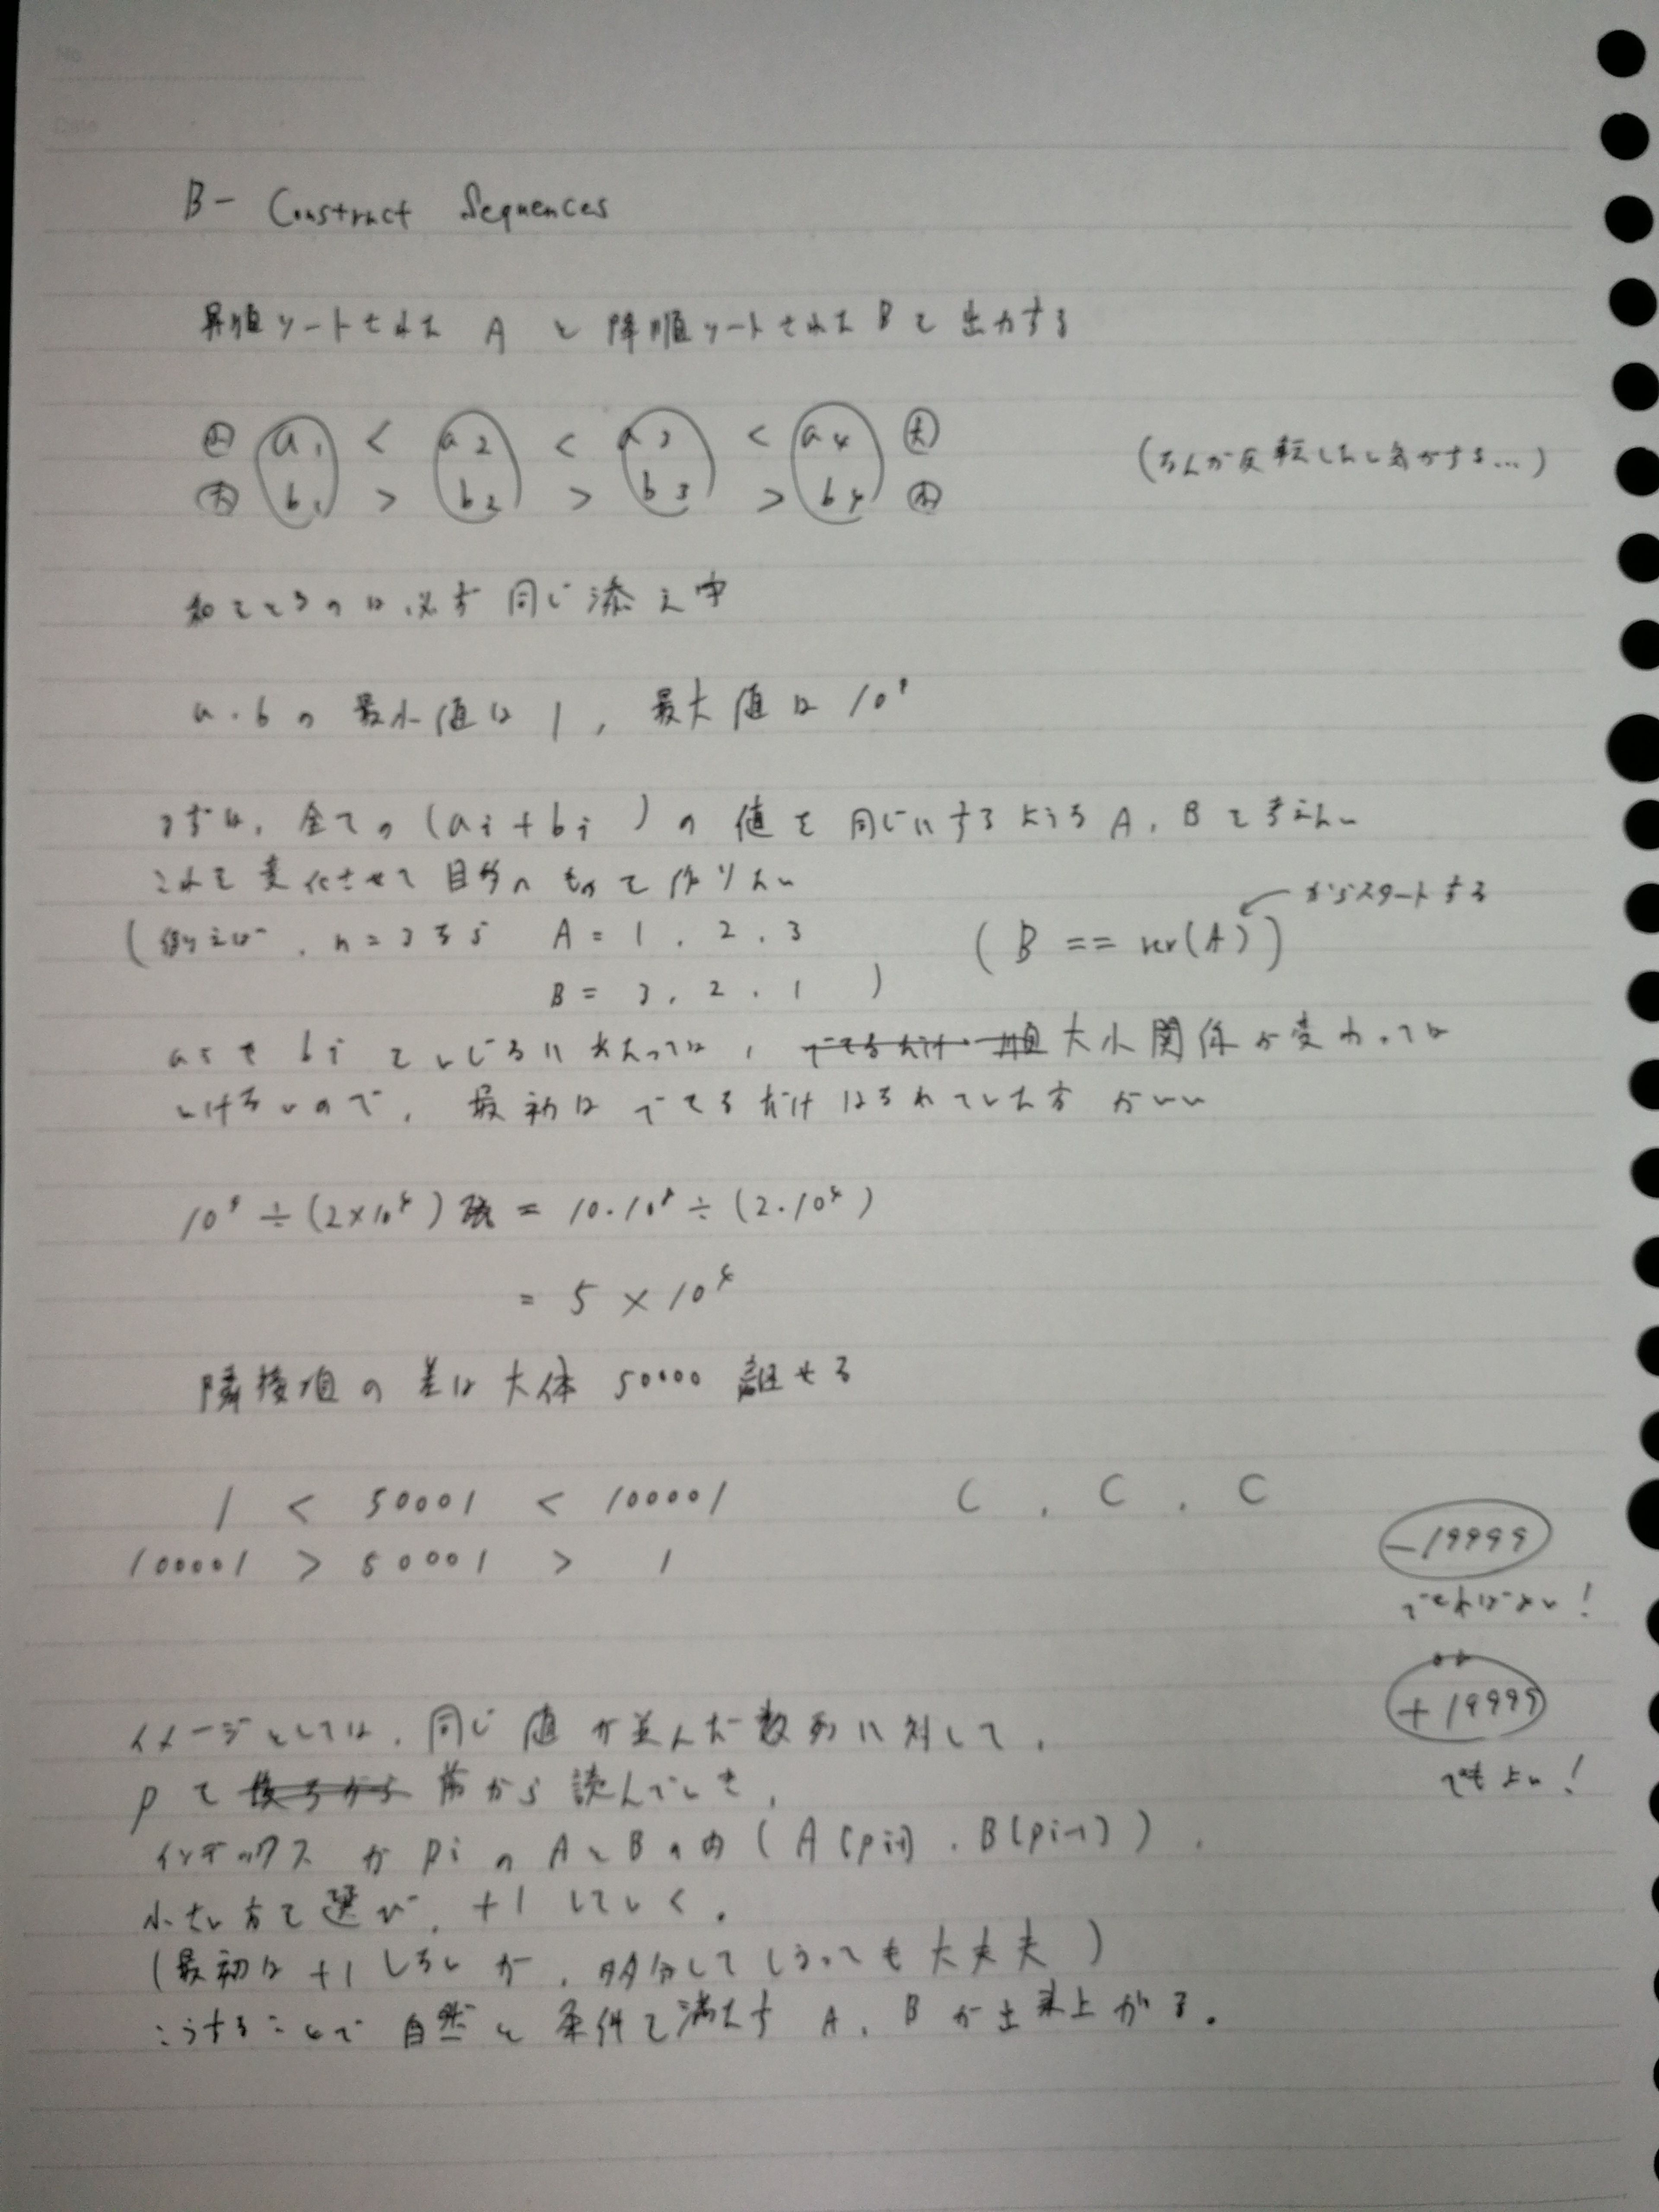 No.
Date
B - Construct Sequences
昇順ソートされた A と 降順ソートされた B を 出力する
小 a1 < a2 < a3 < a4 大
大 b1 > b2 > b3 > b4 小
(なんか反転したい気がする…)
和をとるのは必ず同じ添え字
a・bの 最小値は 1, 最大値は 10⁹
まずは、全ての (ai + bi) の 値を 同じにするような A, B を考えたい
これを変化させて目的のものを作りたい
からスタートする
(例えば、n = 3なら A = 1, 2, 3
(B == rev(A))
B = 3, 2, 1 )
aiや bi をいじるにあたっては、できるだけ 順 大小関係が変わっては
いけないので、最初は できるだけ はなれていた方 がいい
10⁹ ÷ (2×10⁴) = 10・10⁸ ÷ (2・10⁴)
= 5 × 10⁴
隣接項の差は大体 50000 許せる
1 < 50001 < 100001
C , C , C
100001 > 50001 > 1
-19999
できればよい!
+19999
でもよい!
イメージとしては、同じ値が並んだ数列に対して、
pを 後ろから 前から読んでいき、
インデックスが pi の AとBの内 (A[pi-1], B[pi-1])、
小さい方を選び、+1 していく。
(最初は +1 しないが、多分してしまっても大丈夫)
こうすることで自然と条件を満たす A, B が出来上がる。